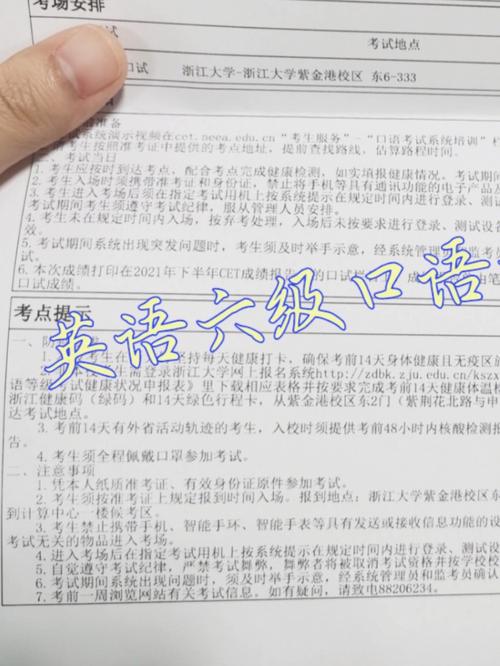 考场安排
考试地点
口试 浙江大学-浙江大学紫金港校区 东6-333
准备
试系统演示视频在cet.neea.edu.cn“考生服务”-“口语考试系统培训”栏
考生按照准考证中提供的考点地址，提前查找路线，估算路程时间。
二、考试当日
1. 考生应按时到达考点，配合考点完成健康检测，如实填报健康情况。考试期间
2. 考生入场时须携带准考证和身份证，禁止将手机等具有通讯功能的电子产品
3. 考生入场后须在指定考试用机上按系统提示在规定时间内进行登录、测试
考试期间考生须遵守考试纪律，服从管理人员安排。
4. 考生未在规定时间内入场，按弃考处理，入场后未按要求进行登录、测试设备
5. 考试期间系统出现突发问题时，考生须及时举手示意，经系统管理员
6. 本次成绩打印在2021年下半年CET成绩报告
口试成绩。
英语六级口语
考点提示
一、防
坚持每天健康打卡，确保考前14天身体健康且无疫区
需登录浙江大学网上报名系统http://zdbk.zju.edu.cn/kszx
语等级考试健康状况申报表》里下载相应表格并按要求完成考前14天健康体温
浙江健康码（绿码）和14天绿色行程卡，从紫金港校区东2门（紫荆花北路与申
达考试地点。
3. 考前14天有外省活动轨迹的考生，入校时须提供考前48小时内核酸检测报
告。
4. 考生须全程佩戴口罩参加考试。
二、注意事项
1. 凭本人纸质准考证、有效身份证原件参加考试。
2. 考生须按准考证上规定报到时间入场。报到地点：浙江大学紫金港校区东
到计算中心一楼候考区。
3. 考生禁止携带手机、智能手环、智能手表等具有发送或接收信息功能的设
考试无关的物品进入考场。
4. 进入考场后在指定考试用机上按系统提示在规定时间内进行登录、测试设
5. 自觉遵守考试纪律，严禁考试舞弊，舞弊者将被取消考试资格并按学校
6. 考试期间系统出现问题时，须及时举手示意，经系统管理员和监考员确认
7. 考前一周浏览网站有关考试信息。如有疑问，请致电88206234。